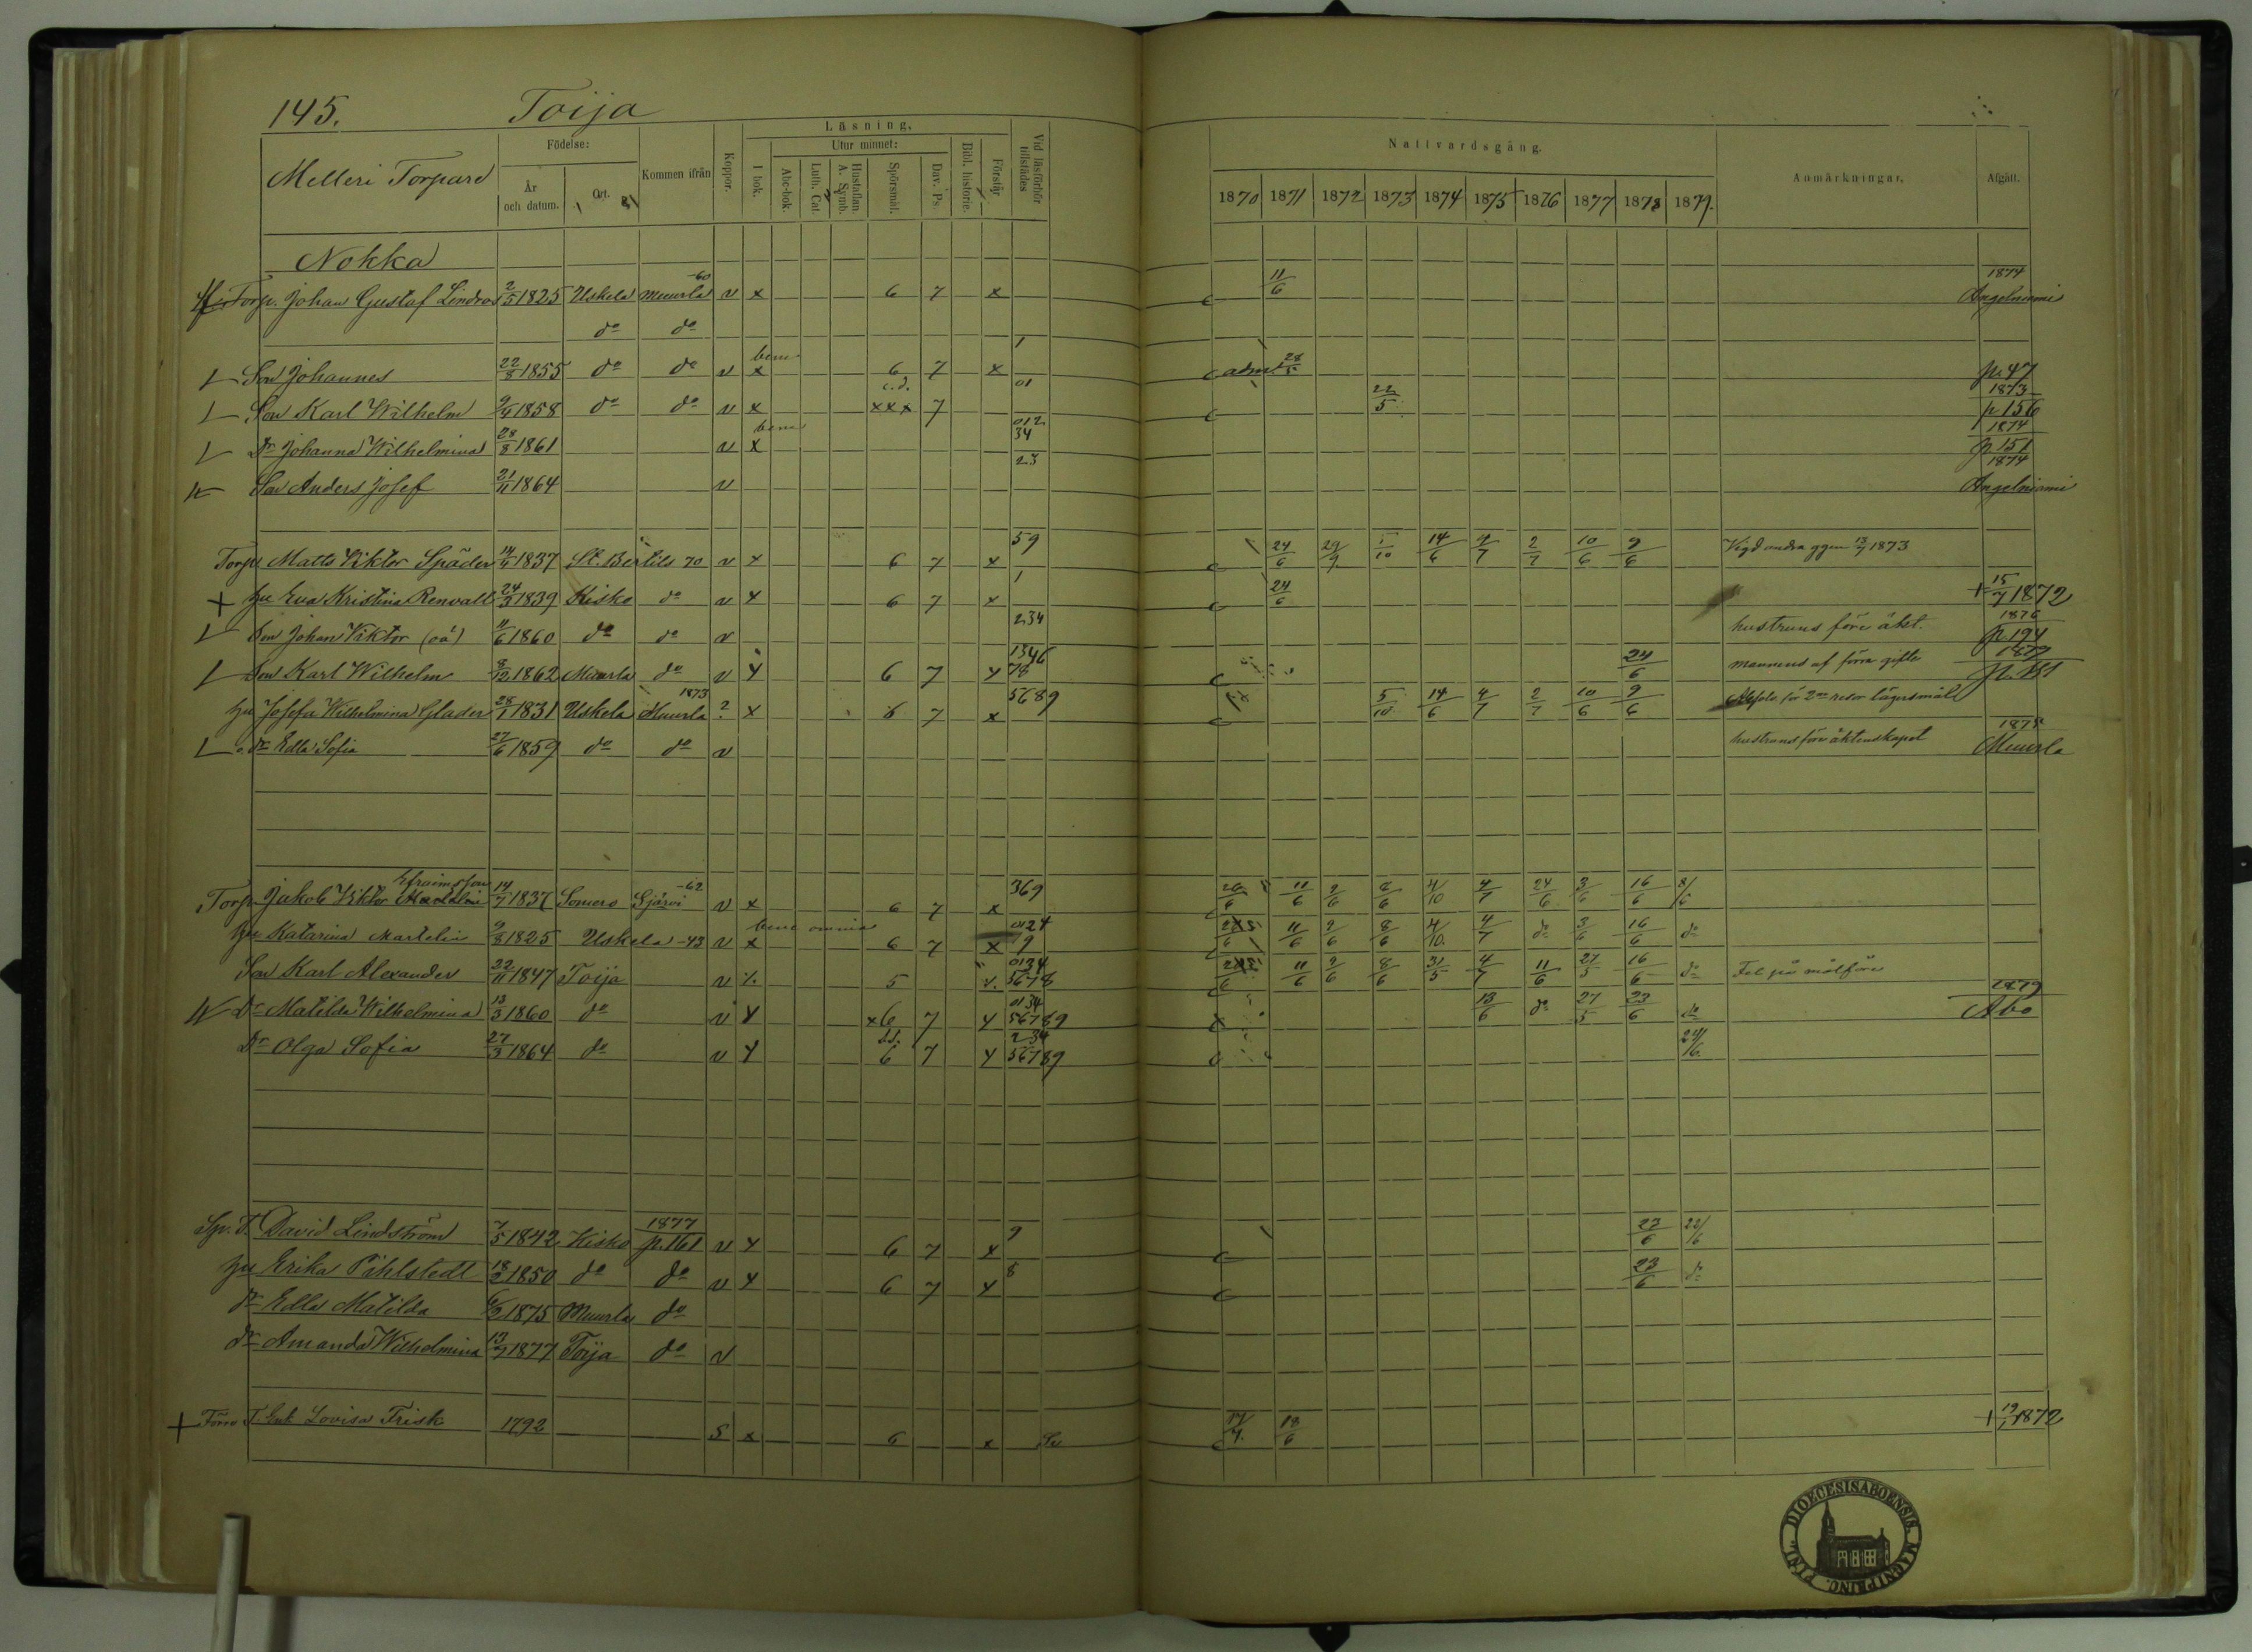 145. Toija
Melleri Torpare
Födelse: År och datum. Ort. Kommen ifrån Koppor. Läsning, I bok. Utur minnet: Abc-bok. Luth. Cat. Hustaflan A. Symb. Spörsmål. Dav. Ps. Bibl. historie. Förstår Vid läsförhör tillstädes
Nattvardsgång. Anmärkningar. Afgått.
1870 1871 1872 1873 1874 1875 1876 1877 1878 1879.
Nokka
Torp. Johan Gustaf Lindros 2/5 1825 Uskela Muurla -60 v x 6 7 x 11/6 1874 Angelniemi
do do
Son Johannes 22/8 1855 do do v bene x 6 7 x 1 adm 28/5 p. 47
Son Karl Wilhelm 9/4 1858 do do v x c.d. xxx 7 01 22/5 1873 p 156
Dr Johanna Wilhelmina 28/8 1861 v bene x 012 34 1874 p 151
Son Anders Josef 21/11 1864 v 23 1874 Angelniemi
Torp. Matts Viktor Späder 14/4 1837 St. Bertils 70 v x 6 7 x 59 24/6 29/9 5/10 14/6 4/7 2/7 10/6 9/6 Vigd andra ggen 13/7 1873
Hu Eva Kristina Renvall 24/3 1839 Kisko do v x 6 7 x 1 24/6 + 15/7 1872
Son Johan Viktor (oä) 11/6 1860 do do v 234 hustruns före äkt. 1876 p. 194
Son Karl Wilhelm 8/12 1862 Muurla do v x 6 7 x 1346 78 24/6 mannens af förra gifte 1879
Hu Josefa Wilhelmina Glader 28/1 1831 Uskela Muurla 1873 ? x 6 7 x 5689 5/10 14/6 4/7 2/7 10/6 9/6 för 2ne resor lägersmål
o. dr Edla Sofia 27/6 1859 do do v hustruns före äktenskapet 1875 Muurla
Torp. Jakob Viktor Efraimsson 14/7 1837 Somero Sjärvi -62 v x 6 7 x 369 26/6 11/6 2/6 8/6 4/10 4/7 24/6 3/6 16/6 8/6
Hu Katarina Martelin 9/8 1825 Uskela -43 v bene omnia x 6 7 x 0124 9 11/6 2/6 8/6 4/10. 4/7 do 3/6 16/6 do
Son Karl Alexander 22/11 1847 Toija v 5 0134 5678 11/6 2/6 8/6 31/5 4/7 11/6 27/5 16/6 do Fel på målföre
Dr Matilda Wilhelmina 13/3 1860 do v x x6 7 x 0134 56789 13/6 do 27/5 23/6 do 1879 Åbo
Dr Olga Sofia 27/3 1864 do v x 6 7 x 234 56789 24/6.
Sp. T. David Lindström 7/5 1842 Kisko 1877 p. 161 v x 6 7 x 9 23/6 22/6
Hu Erika Påhlstedt 18/2 1850 do do v x 6 7 x 8 23/6 do
dr Edla Matilda 6/2 1875 Muurla do
dr Amanda Wilhelmina 13/7 1877 Toija do v
+ Förra T. Enk Lovisa Frisk 1792 S x 6 x 17/4. 18/6 + 19/1 1872
DIOECESIS ABOENSIS. MAGNI PRINC. FINL.